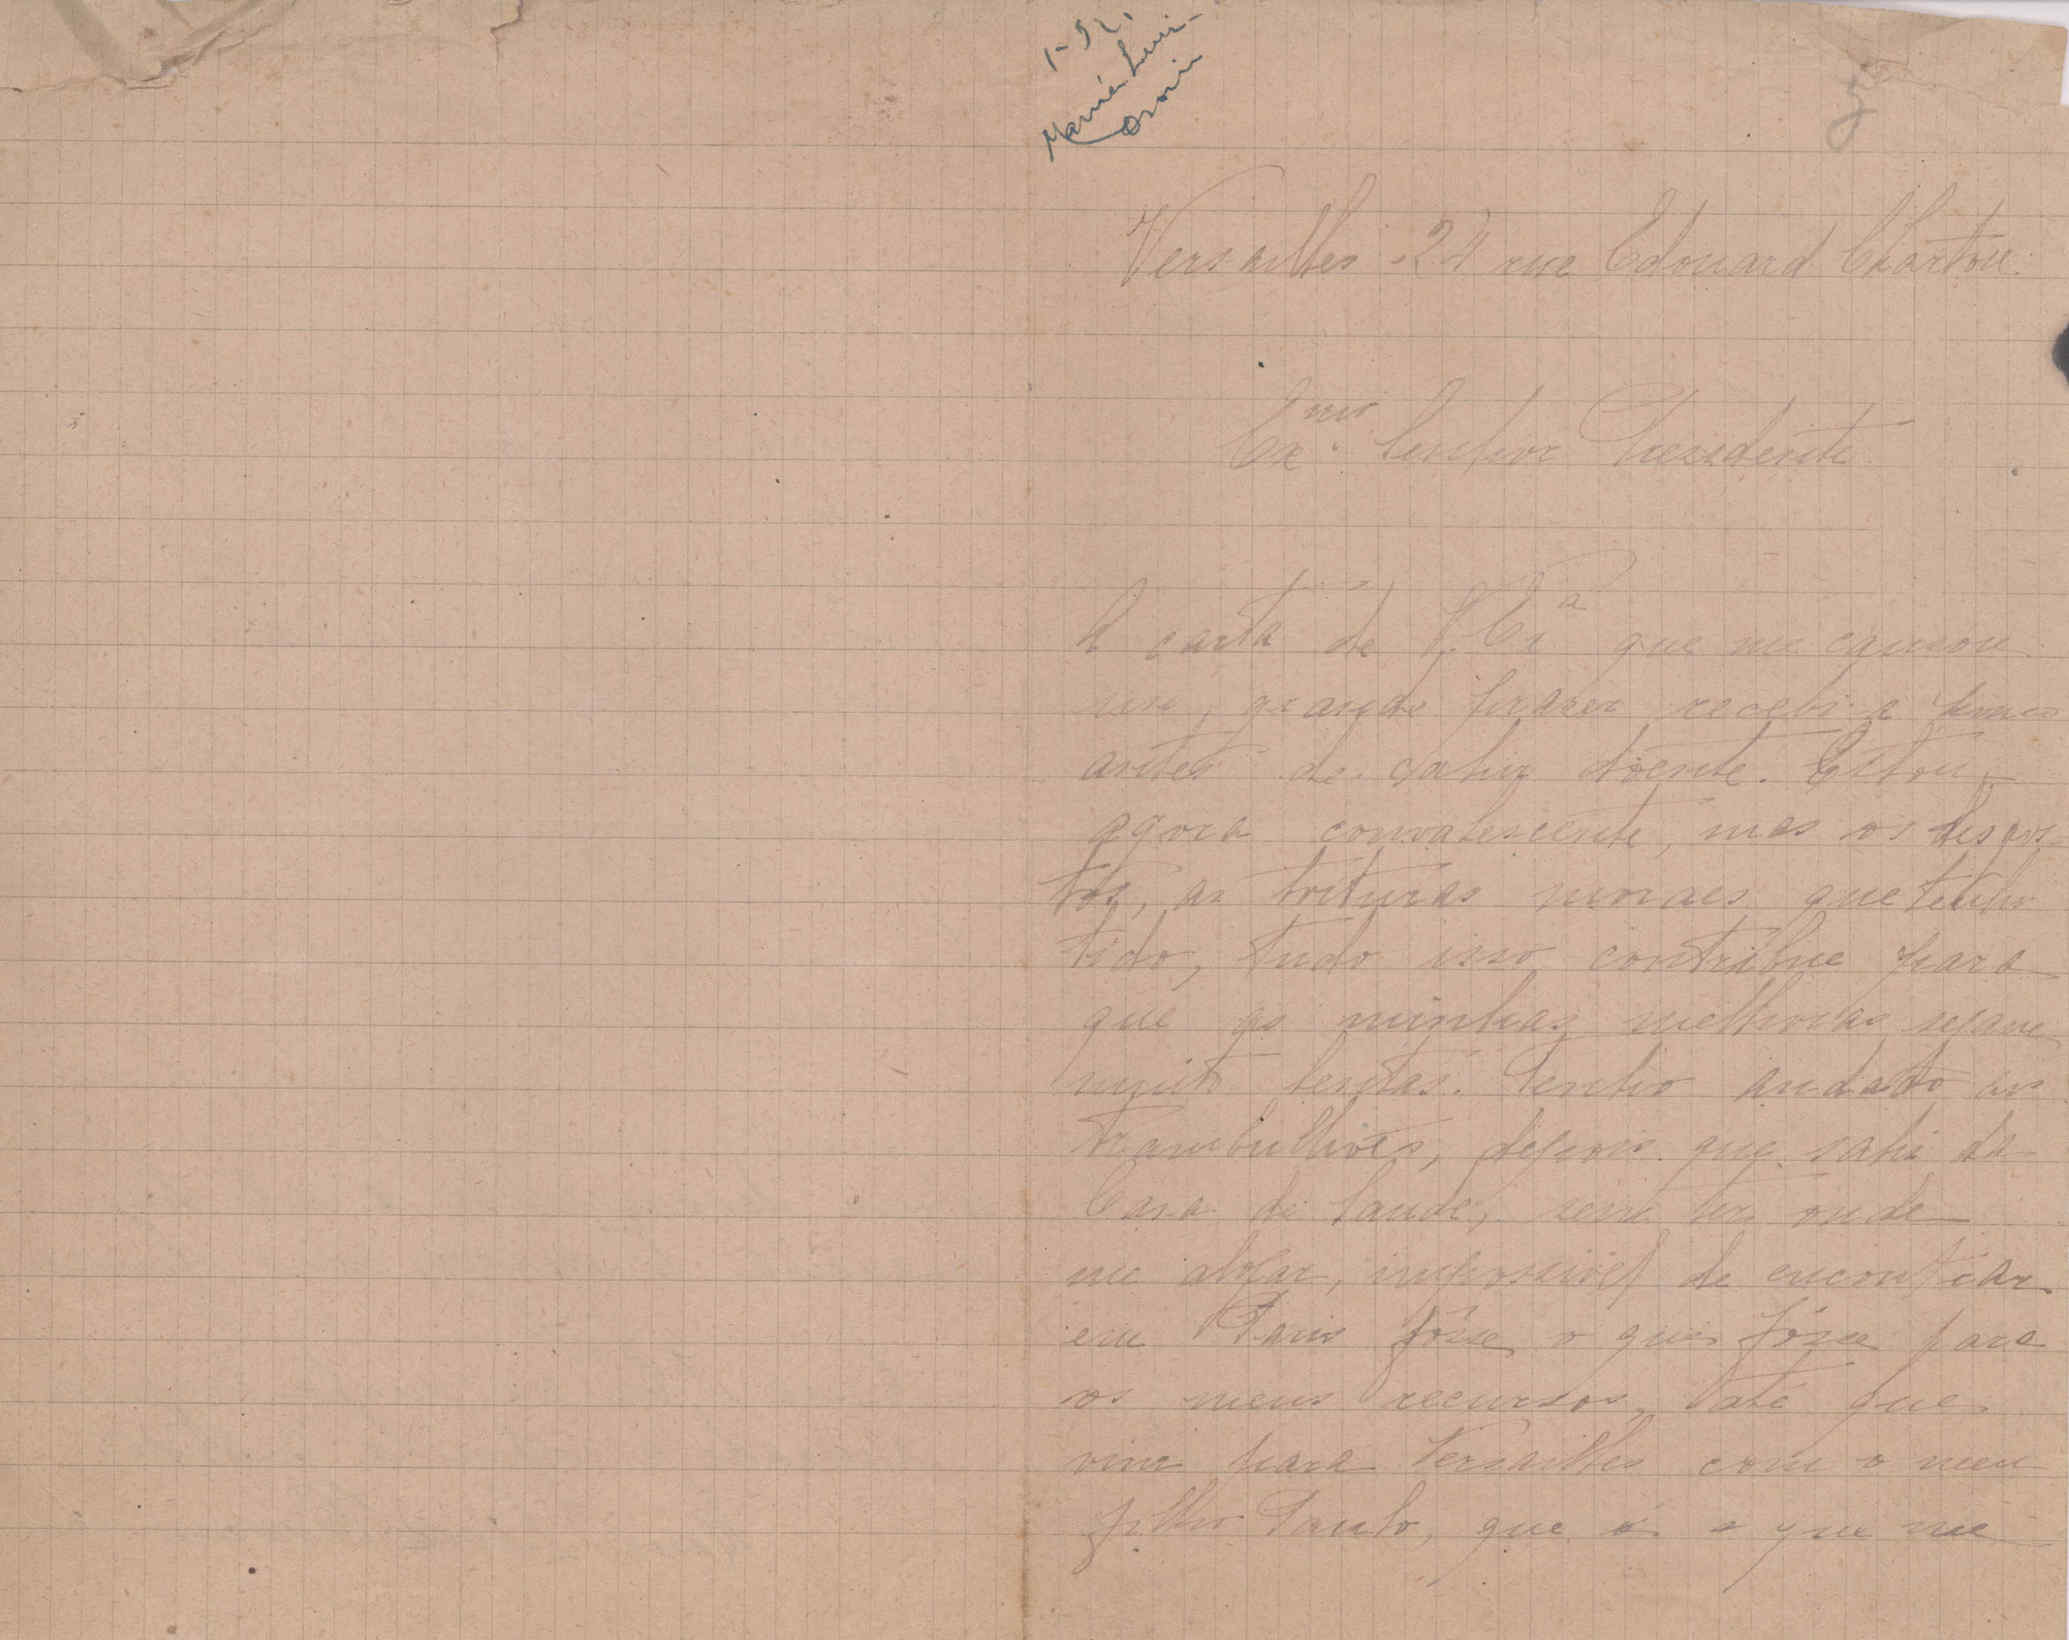 Versailles. 24 rue Edouard Charton
Ex.mo Senhor Presidente
A carta de V. Ex.a que me causou
um grande prazer recebi-a pouco
antes de cahir doente. Estou
agora convalescente, mas os desgos-
tos, as torturas moraes que tenho
tido, tudo isso contribue para
que as minhas melhoras sejam
muito lentas. Tenho andado aos
trambulhões, depois que sahi da
Casa de Saude, sem ter onde
me alojar, impossivel de encontrar
em Paris fôsse o que fôsse para
os meus recursos, até que
vim para Versailles com o meu
filho Paulo, que é o que me